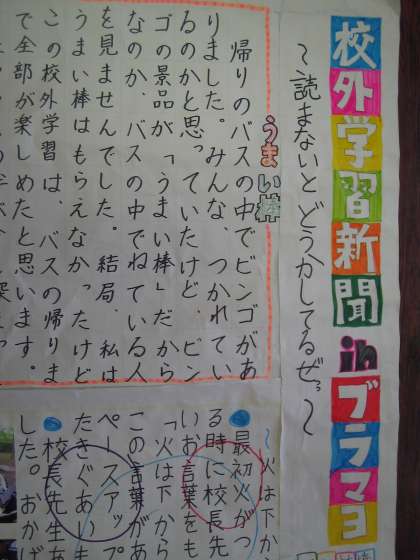 校外学習新聞inブラマヨ
〜読まないとどうかしてるぜっ〜
うまい棒
帰りのバスの中でビンゴがあ
りました。みんな、つかれてい
るのかと思っていたけど、ビン
ゴの景品が「うまい棒」だから
なのか、バスの中でねている人
を見ませんでした。結局、私は
うまい棒はもらえなかったけど
この校外学習は、バスの帰りま
で全部が楽しめたと思います。
〜火は下から
最初火がつ
る時に校長先
いお言葉をも
「火は下から
この言葉があ
ペースアップ
たきぐあいま
校長先生あ
した。おかげ